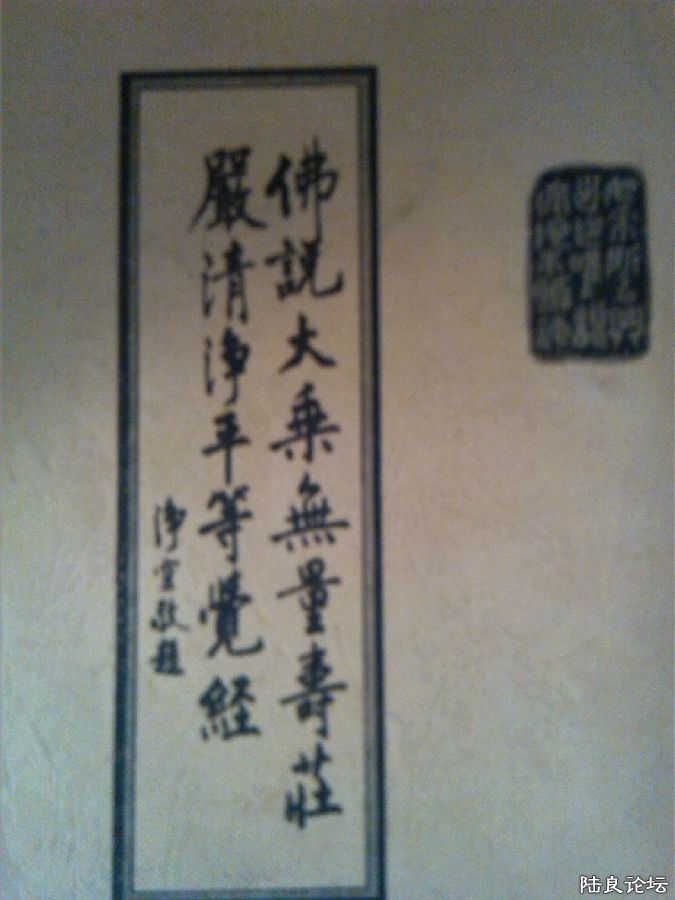 佛説大乘無量壽莊
嚴清淨平等覺経
淨空敬題
陆良论坛